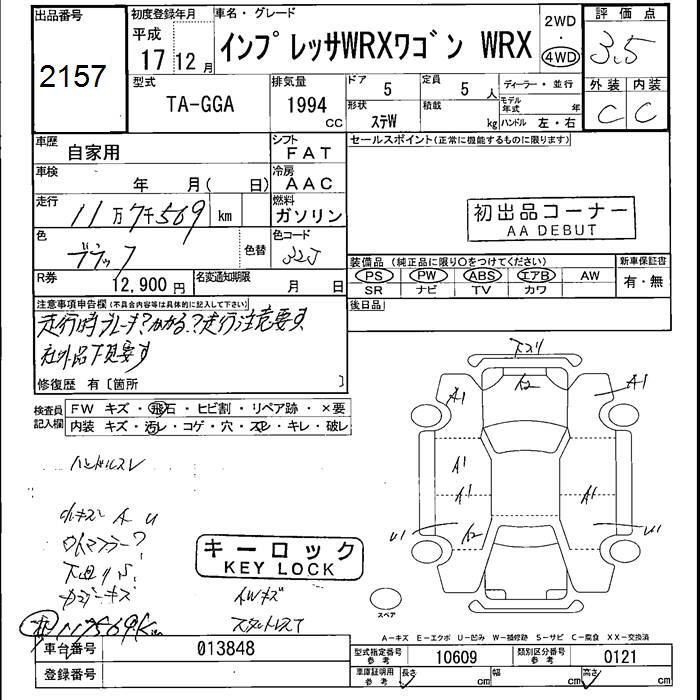 出品番号 初度登録年月 車名・グレード 2WD 評価点
2157 平成 17 12月 インプレッサWRXワゴン WRX ・ 4WD 3.5
型式 排気量 ドア 5 定員 5人 ディーラー・並行 外装 内装
TA-GGA 1994 CC 形状 ステW 積載 kg モデル年式 年 ハンドル 左・右 C C
車歴 自家用 シフト FAT セールスポイント(正常に機能するものに限ります)
車検 年 月( 日) 冷房 AAC
走行 11万7千569 km 燃料 ガソリン 初出品コーナー
AA DEBUT
色 ブラック 色替 色コード 32J
装備品(純正品に限り○をつけてください) 新車保証書
R券 12,900円 名変通知期限 月 日 PS PW ABS エアB AW 有・無
SR ナビ TV カワ
注意事項申告欄(不具合内容等は具体的に記入して下さい) 後日品
走行時ブレーキ?かかる?走行注意要す
社外品下見要す
修復歴 有〔箇所 〕
検査員記入欄 FW キズ・飛石・ヒビ割・リペア跡・×要
内装 キズ・汚レ・コゲ・穴・スレ・キレ・破レ
下スリ
A2
A1 A1
ハンドルスレ A1
A1 A1
小キズ A U U1 A2 U1
ロ
キーロック
KEY LOCK
下廻りサ
キズ AWキズ
スペア
117569Km スタットレスT
A-キズ E-エクボ U-凹み W-補修跡 S-サビ C-腐食 XX-交換済
車台番号 013848 型式指定番号 参考 10609 類別区分番号 参考 0121
登録番号 車庫証明用 参考 長さ cm 幅 cm 高さ cm